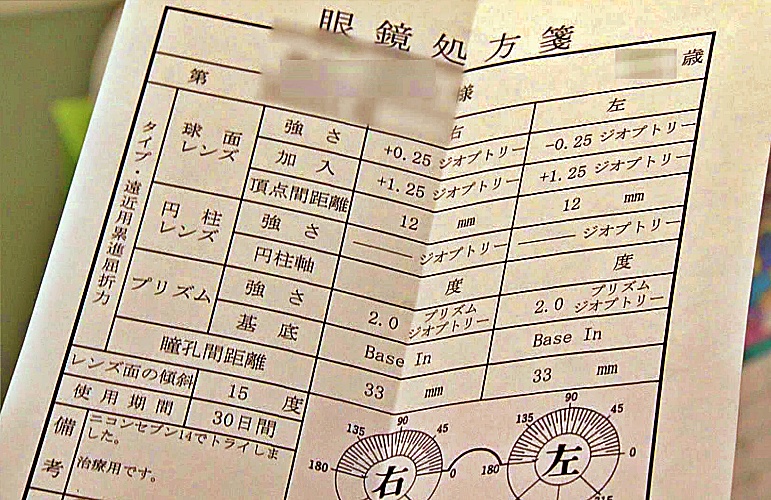 眼鏡処方箋
第 様 歳
右 左
タイプ・遠近用累進屈折力
球面レンズ 強さ +0.25 ジオプトリー -0.25 ジオプトリー
加入 +1.25 ジオプトリー +1.25 ジオプトリー
頂点間距離 12 mm 12 mm
円柱レンズ 強さ ―― ジオプトリー ―― ジオプトリー
円柱軸 度 度
プリズム 強さ 2.0 プリズムジオプトリー 2.0 プリズムジオプトリー
基底 Base In Base In
瞳孔間距離 33 mm 33 mm
レンズ面の傾斜 15 度
使用期間 30日間
備考 ニコンセブン14でトライしま
した。
治療用です。
135 90 45 180 0 右
135 90 45 180 0 左